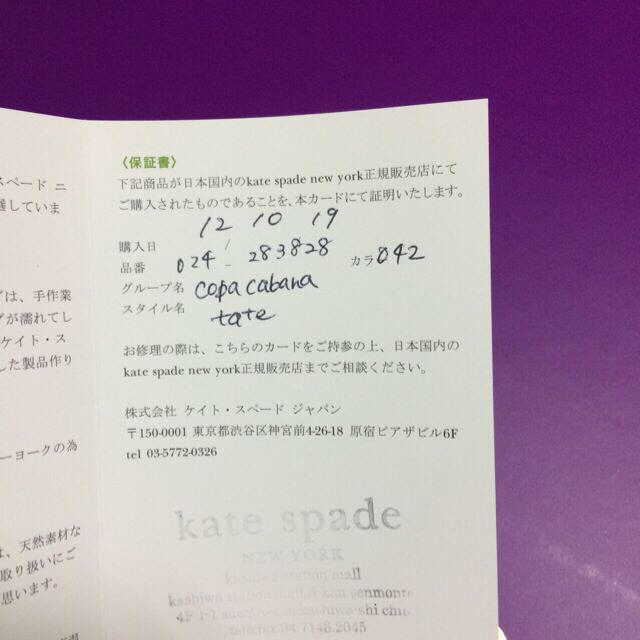 スペード ニ
〈保証書〉
下記商品が日本国内のkate spade new york正規販売店にて
ご購入されたものであることを、本カードにて証明いたします。
購入日 12 10 19
品番 024 - 283828 カラ 042
グループ名 copa cabana
スタイル名 tate
お修理の際は、こちらのカードをご持参の上、日本国内の
kate spade new york正規販売店までご相談ください。
株式会社 ケイト・スペード ジャパン
〒150-0001 東京都渋谷区神宮前4-26-18 原宿ピアザビル6F
tel 03-5772-0326
kate spade
NEW YORK
kashiwa station mall
kashiwa station mall S-kan senmonte
4F 1-1 suehiro-cho kashiwa-shi chib
tel&fax 04.7148.2045
していま
ずは、手作業
グが濡れてし
ケイト・ス
した製品作り
ーヨークの為
は、天然素材な
取り扱いにご
思います。